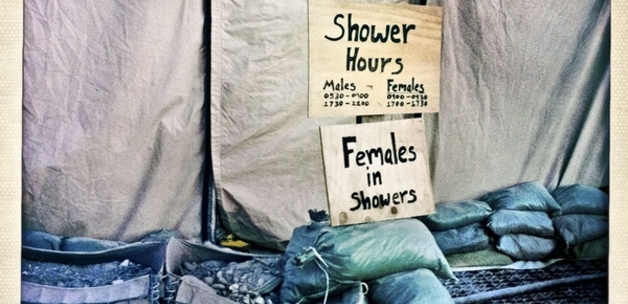 Shower
Hours
Males Females
0530-0900 0900-0930
1730-2100 1700-1730
Females
in
Showers